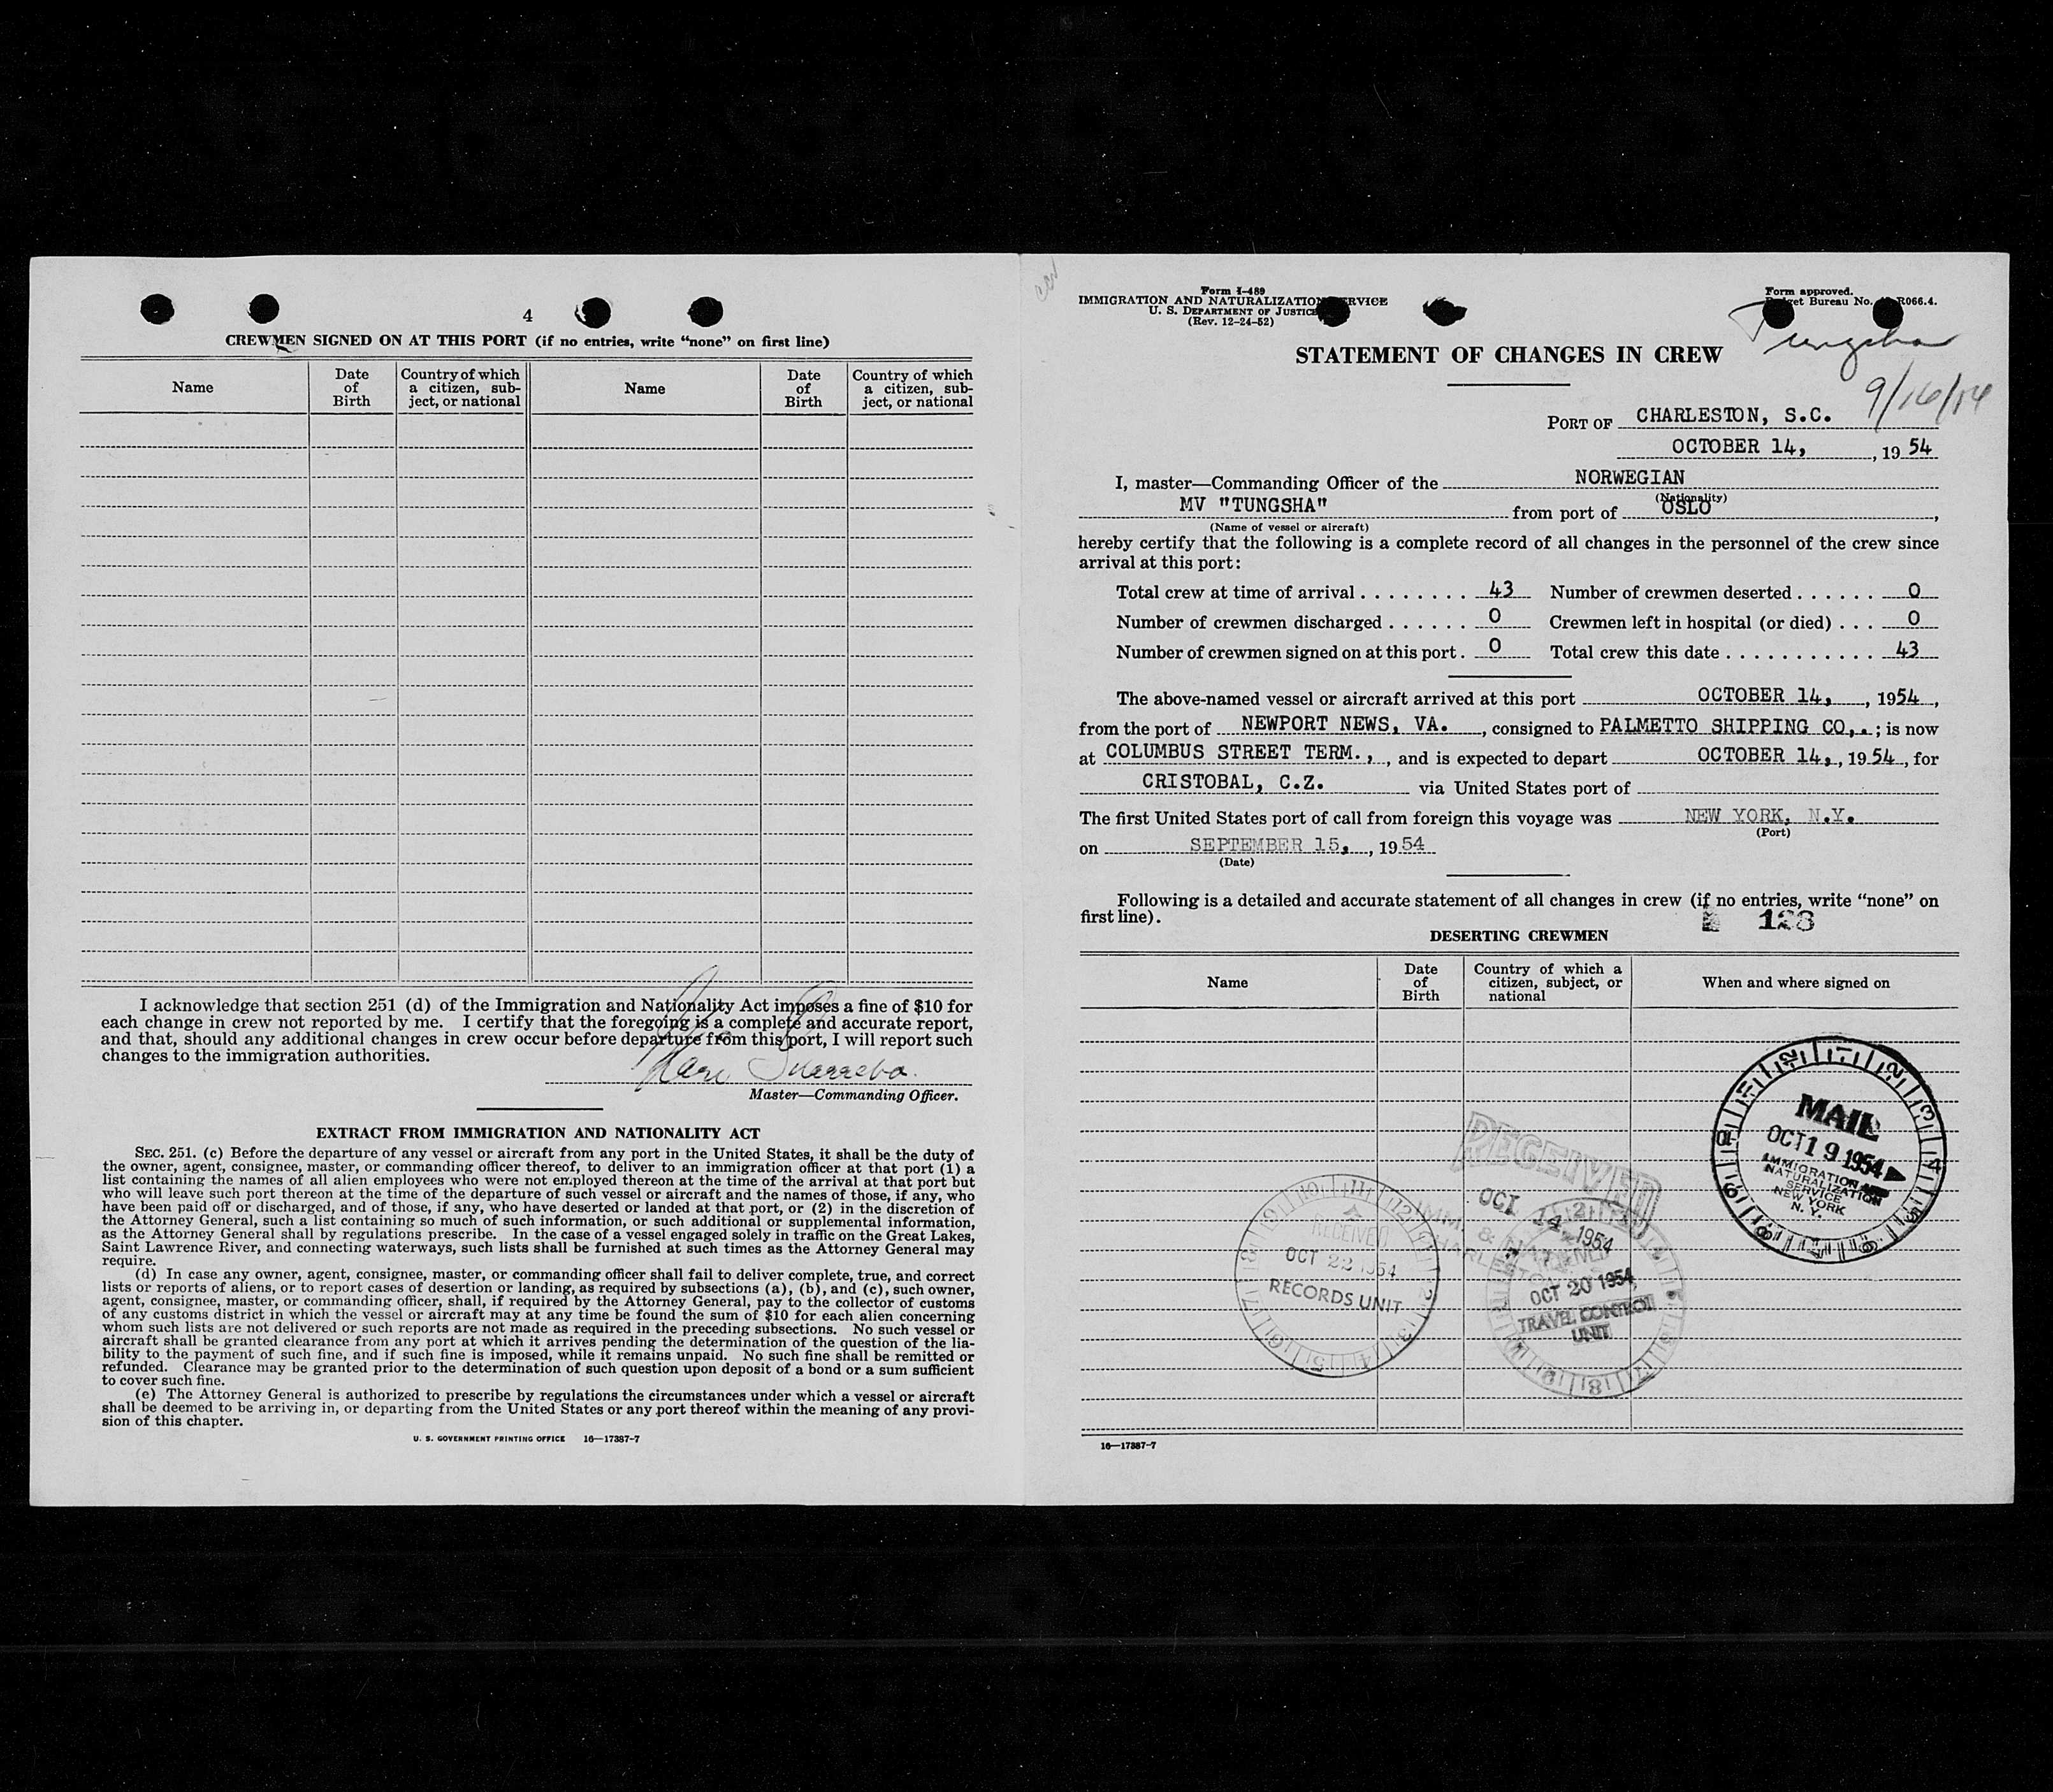 4
CREWMEN SIGNED ON AT THIS PORT (if no entries, write “none” on first line)
Name
Date of Birth
Country of which a citizen, sub-ject, or national
Name
Date of Birth
Country of which a citizen, sub-ject, or national
I acknowledge that section 251 (d) of the Immigration and Nationality Act imposes a fine of $10 for
each change in crew not reported by me. I certify that the foregoing is a complete and accurate report,
and that, should any additional changes in crew occur before departure from this port, I will report such
changes to the immigration authorities.
Master—Commanding Officer.
EXTRACT FROM IMMIGRATION AND NATIONALITY ACT
SEC. 251. (c) Before the departure of any vessel or aircraft from any port in the United States, it shall be the duty of
the owner, agent, consignee, master, or commanding officer thereof, to deliver to an immigration officer at that port (1) a
list containing the names of all alien employees who were not employed thereon at the time of the arrival at that port but
who will leave such port thereon at the time of the departure of such vessel or aircraft and the names of those, if any, who
have been paid off or discharged, and of those, if any, who have deserted or landed at that port, or (2) in the discretion of
the Attorney General, such a list containing so much of such information, or such additional or supplemental information,
as the Attorney General shall by regulations prescribe. In the case of a vessel engaged solely in traffic on the Great Lakes,
Saint Lawrence River, and connecting waterways, such lists shall be furnished at such times as the Attorney General may
require.
(d) In case any owner, agent, consignee, master, or commanding officer shall fail to deliver complete, true, and correct
lists or reports of aliens, or to report cases of desertion or landing, as required by subsections (a), (b), and (c), such owner,
agent, consignee, master, or commanding officer, shall, if required by the Attorney General, pay to the collector of customs
of any customs district in which the vessel or aircraft may at any time be found the sum of $10 for each alien concerning
whom such lists are not delivered or such reports are not made as required in the preceding subsections. No such vessel or
aircraft shall be granted clearance from any port at which it arrives pending the determination of the question of the lia-
bility to the payment of such fine, and if such fine is imposed, while it remains unpaid. No such fine shall be remitted or
refunded. Clearance may be granted prior to the determination of such question upon deposit of a bond or a sum sufficient
to cover such fine.
(e) The Attorney General is authorized to prescribe by regulations the circumstances under which a vessel or aircraft
shall be deemed to be arriving in, or departing from the United States or any port thereof within the meaning of any provi-
sion of this chapter.
U. S. GOVERNMENT PRINTING OFFICE 16—17387-7
Form I-489
IMMIGRATION AND NATURALIZATION SERVICE
U. S. DEPARTMENT OF JUSTICE
(Rev. 12-24-52)
Form approved.
Budget Bureau No. R066.4.
Tungsha
STATEMENT OF CHANGES IN CREW
PORT OF CHARLESTON, S.C.
OCTOBER 14, , 19 54
I, master—Commanding Officer of the NORWEGIAN
(Nationality)
MV "TUNGSHA" from port of OSLO ,
(Name of vessel or aircraft)
hereby certify that the following is a complete record of all changes in the personnel of the crew since
arrival at this port:
Total crew at time of arrival . . . . . . . . 43 Number of crewmen deserted . . . . . . 0
Number of crewmen discharged . . . . . . 0 Crewmen left in hospital (or died) . . . 0
Number of crewmen signed on at this port . 0 Total crew this date . . . . . . . . . . . 43
The above-named vessel or aircraft arrived at this port OCTOBER 14, , 1954 ,
from the port of NEWPORT NEWS, VA. , consigned to PALMETTO SHIPPING CO,. ; is now
at COLUMBUS STREET TERM., , and is expected to depart OCTOBER 14, , 19 54 , for
CRISTOBAL, C.Z. via United States port of
The first United States port of call from foreign this voyage was NEW YORK, N.Y.
(Port)
on SEPTEMBER 15, , 19 54
(Date)
Following is a detailed and accurate statement of all changes in crew (if no entries, write “none” on
first line).
128
DESERTING CREWMEN
Name
Date of Birth
Country of which a citizen, subject, or national
When and where signed on
MAIL
OCT 19 1954
IMMIGRATION AND
NATURALIZATION
SERVICE
NEW YORK
N. Y.
RECEIVED
OCT 14 1954
RECEIVED
OCT 22 1954
RECORDS UNIT
OCT 20 1954
TRAVEL CONTROL
UNIT
16—17387-7